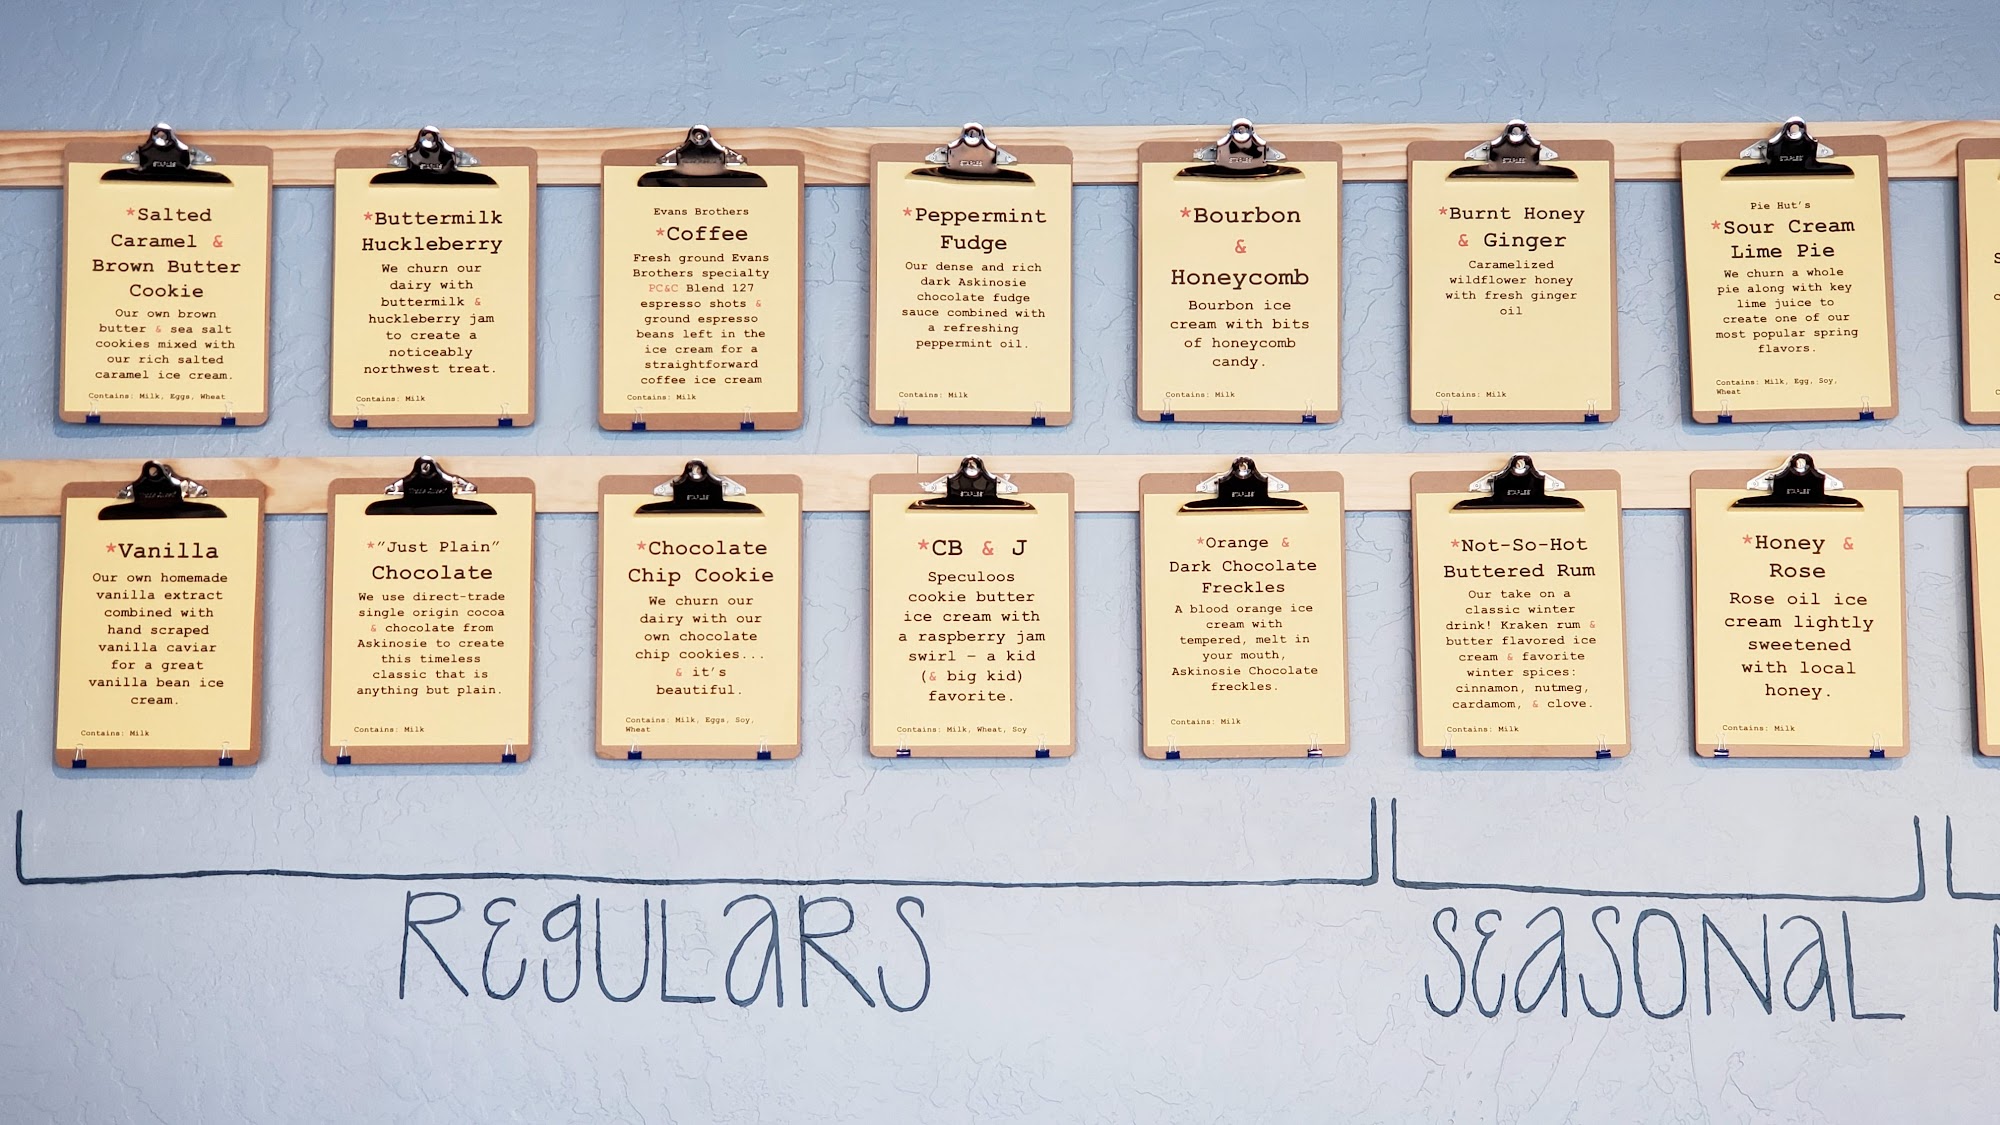 *Salted
Caramel &
Brown Butter
Cookie
Our own brown
butter & sea salt
cookies mixed with
our rich salted
caramel ice cream.
Contains: Milk, Eggs, Wheat
*Buttermilk
Huckleberry
We churn our
dairy with
buttermilk &
huckleberry jam
to create a
noticeably
northwest treat.
Contains: Milk
Evans Brothers
*Coffee
Fresh ground Evans
Brothers specialty
PC&C Blend 127
espresso shots &
ground espresso
beans left in the
ice cream for a
straightforward
coffee ice cream
Contains: Milk
STAPLES
*Peppermint
Fudge
Our dense and rich
dark Askinosie
chocolate fudge
sauce combined with
a refreshing
peppermint oil.
Contains: Milk
STAPLES
*Bourbon
&
Honeycomb
Bourbon ice
cream with bits
of honeycomb
candy.
Contains: Milk
STAPLES
*Burnt Honey
& Ginger
Caramelized
wildflower honey
with fresh ginger
oil
Contains: Milk
STAPLES
Pie Hut's
*Sour Cream
Lime Pie
We churn a whole
pie along with key
lime juice to
create one of our
most popular spring
flavors.
Contains: Milk, Egg, Soy,
Wheat
*Vanilla
Our own homemade
vanilla extract
combined with
hand scraped
vanilla caviar
for a great
vanilla bean ice
cream.
Contains: Milk
*"Just Plain"
Chocolate
We use direct-trade
single origin cocoa
& chocolate from
Askinosie to create
this timeless
classic that is
anything but plain.
Contains: Milk
STAPLES
*Chocolate
Chip Cookie
We churn our
dairy with our
own chocolate
chip cookies...
& it's
beautiful.
Contains: Milk, Eggs, Soy,
Wheat
STAPLES
*CB & J
Speculoos
cookie butter
ice cream with
a raspberry jam
swirl – a kid
(& big kid)
favorite.
Contains: Milk, Wheat, Soy
STAPLES
*Orange &
Dark Chocolate
Freckles
A blood orange ice
cream with
tempered, melt in
your mouth,
Askinosie Chocolate
freckles.
Contains: Milk
STAPLES
*Not-So-Hot
Buttered Rum
Our take on a
classic winter
drink! Kraken rum &
butter flavored ice
cream & favorite
winter spices:
cinnamon, nutmeg,
cardamom, & clove.
Contains: Milk
STAPLES
*Honey &
Rose
Rose oil ice
cream lightly
sweetened
with local
honey.
Contains: Milk
REgULaRS
SEaSONaL